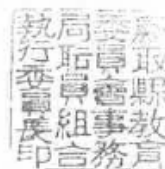 鳥取縣教育
委員會事務
局職員組合
執行委員長印